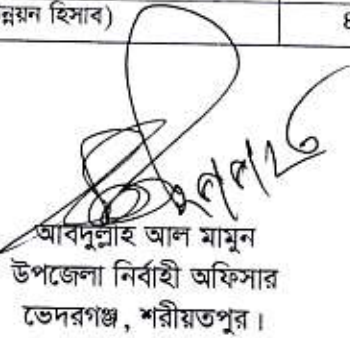 ন্নয়ন হিসাব)
আবদুল্লাহ আল মামুন
উপজেলা নির্বাহী অফিসার
ভেদরগঞ্জ, শরীয়তপুর।